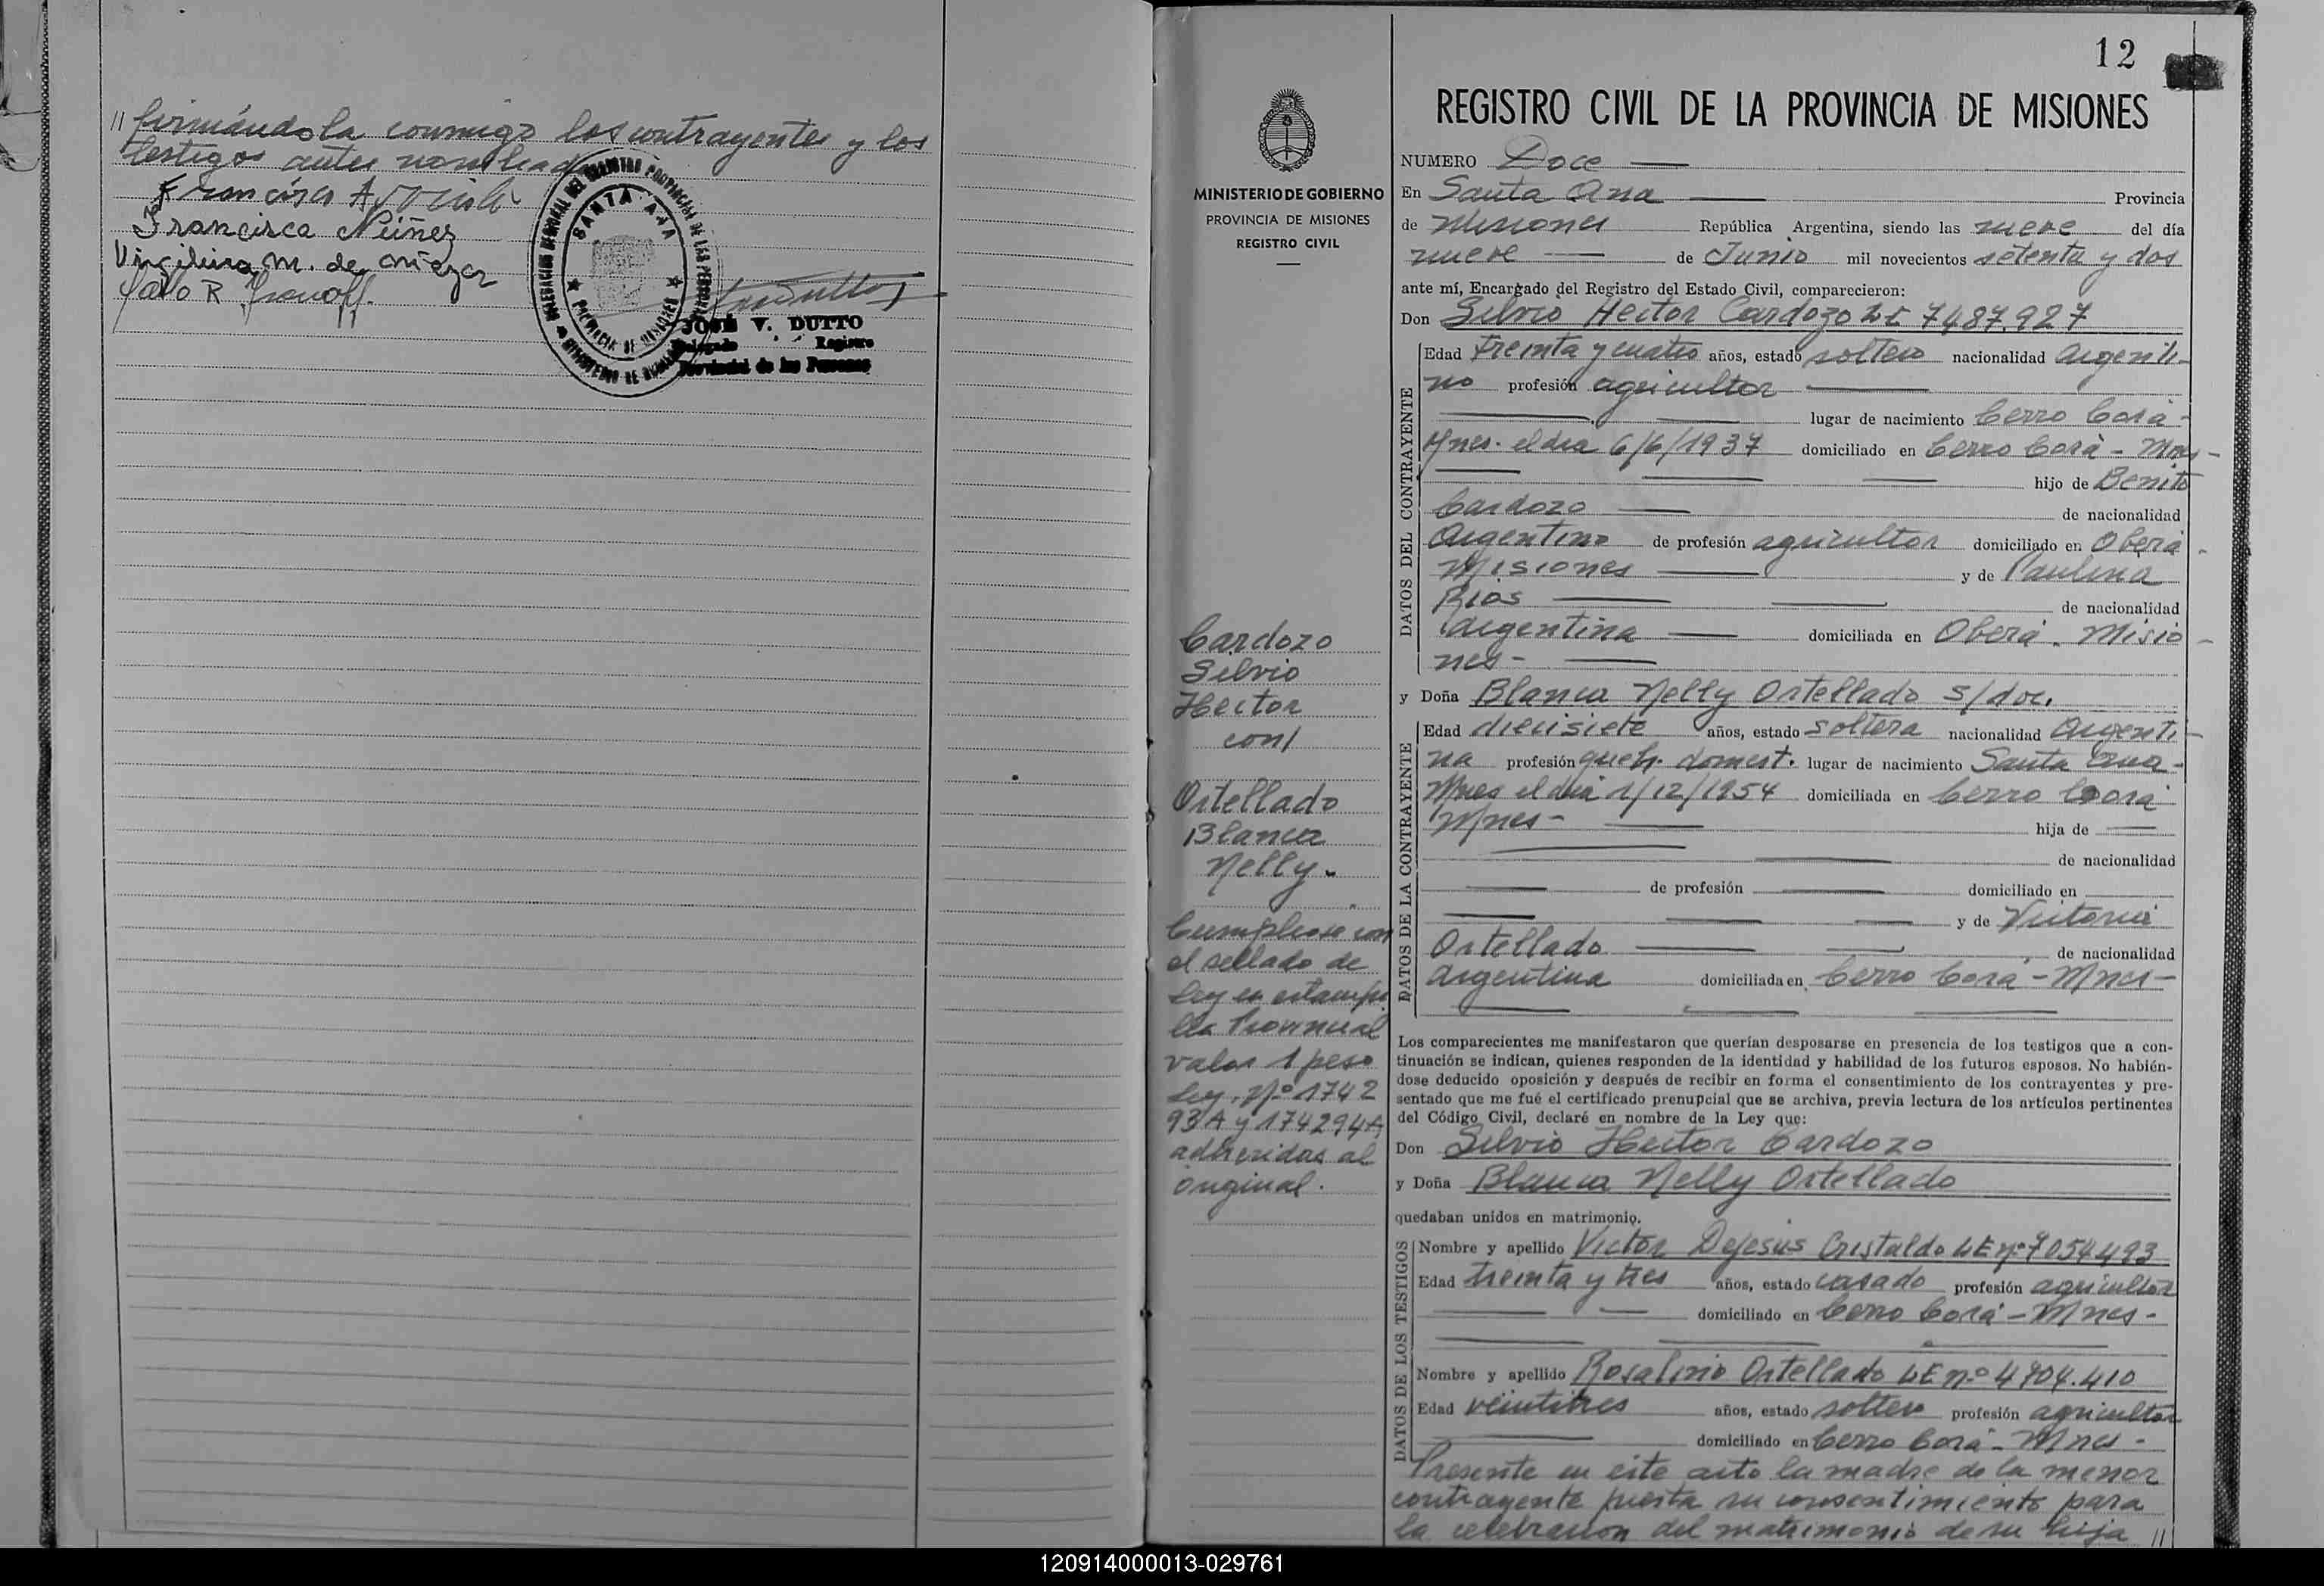 // firmándola conmigo los contrayentes y los
testigos antes nombrad
Francisca Núñez
Virgilina M. de
SANTA ANA
PROVINCIA DE MISIONES
JOSÉ V. DUTTO
Delegado Registro
Provincial de las Personas
12
MINISTERIO DE GOBIERNO
PROVINCIA DE MISIONES
REGISTRO CIVIL
Cardozo
Silvio
Hector
con/
Ortellado
Blanca
Nelly.
Cumplease con
el sellado de
Ley en estampi
lla Provincial
valor 1 peso
Ley. Nº 1742
93A y 174294A
adheridas al
original.
REGISTRO CIVIL DE LA PROVINCIA DE MISIONES
NUMERO Doce
En Santa Ana Provincia
de Misiones República Argentina, siendo las nueve del día
nueve de Junio mil novecientos setenta y dos
ante mí, Encargado del Registro del Estado Civil, comparecieron:
Don Silvio Hector Cardozo LE 7487.927
DATOS DEL CONTRAYENTE
Edad treinta y cuatro años, estado soltero nacionalidad argenti-
no profesión agricultor
lugar de nacimiento Cerro Corá-
Mnes. el dia 6/6/1937 domiciliado en Cerro Corá - Mnes-
hijo de Benito
Cardozo de nacionalidad
Argentino de profesión agricultor domiciliado en Oberá-
Misiones y de Paulina
Rios de nacionalidad
argentina domiciliada en Oberá. Misio-
nes-
y Doña Blanca Nelly Ortellado s/doc.
DATOS DE LA CONTRAYENTE
Edad diecisiete años, estado soltera nacionalidad argenti-
na profesión queh. domest. lugar de nacimiento Santa Ana-
Mnes el dia 1/12/1954 domiciliada en Cerro Corá
Mnes- hija de
de nacionalidad
de profesión domiciliado en
y de Victoria
Ortellado de nacionalidad
argentina domiciliada en Cerro Corá - Mnes-
Los comparecientes me manifestaron que querían desposarse en presencia de los testigos que a con-
tinuación se indican, quienes responden de la identidad y habilidad de los futuros esposos. No habién-
dose deducido oposición y después de recibir en forma el consentimiento de los contrayentes y pre-
sentado que me fué el certificado prenupcial que se archiva, previa lectura de los artículos pertinentes
del Código Civil, declaré en nombre de la Ley que:
Don Silvio Hector Cardozo
y Doña Blanca Nelly Ortellado
quedaban unidos en matrimonio.
DATOS DE LOS TESTIGOS
Nombre y apellido Victor Dejesús Cristaldo LE nº 7054493
Edad treinta y tres años, estado casado profesión agricultor
domiciliado en Cerro Corá - Mnes-
Nombre y apellido Rosalino Ortellado LE nº 4704.410
Edad veintitres años, estado soltero profesión agricultor
domiciliado en Cerro Corá - Mnes -
Presente en este acto la madre de la menor
contrayente presta su consentimiento para
la celebracion del matrimonio de su hija //
120914000013-029761